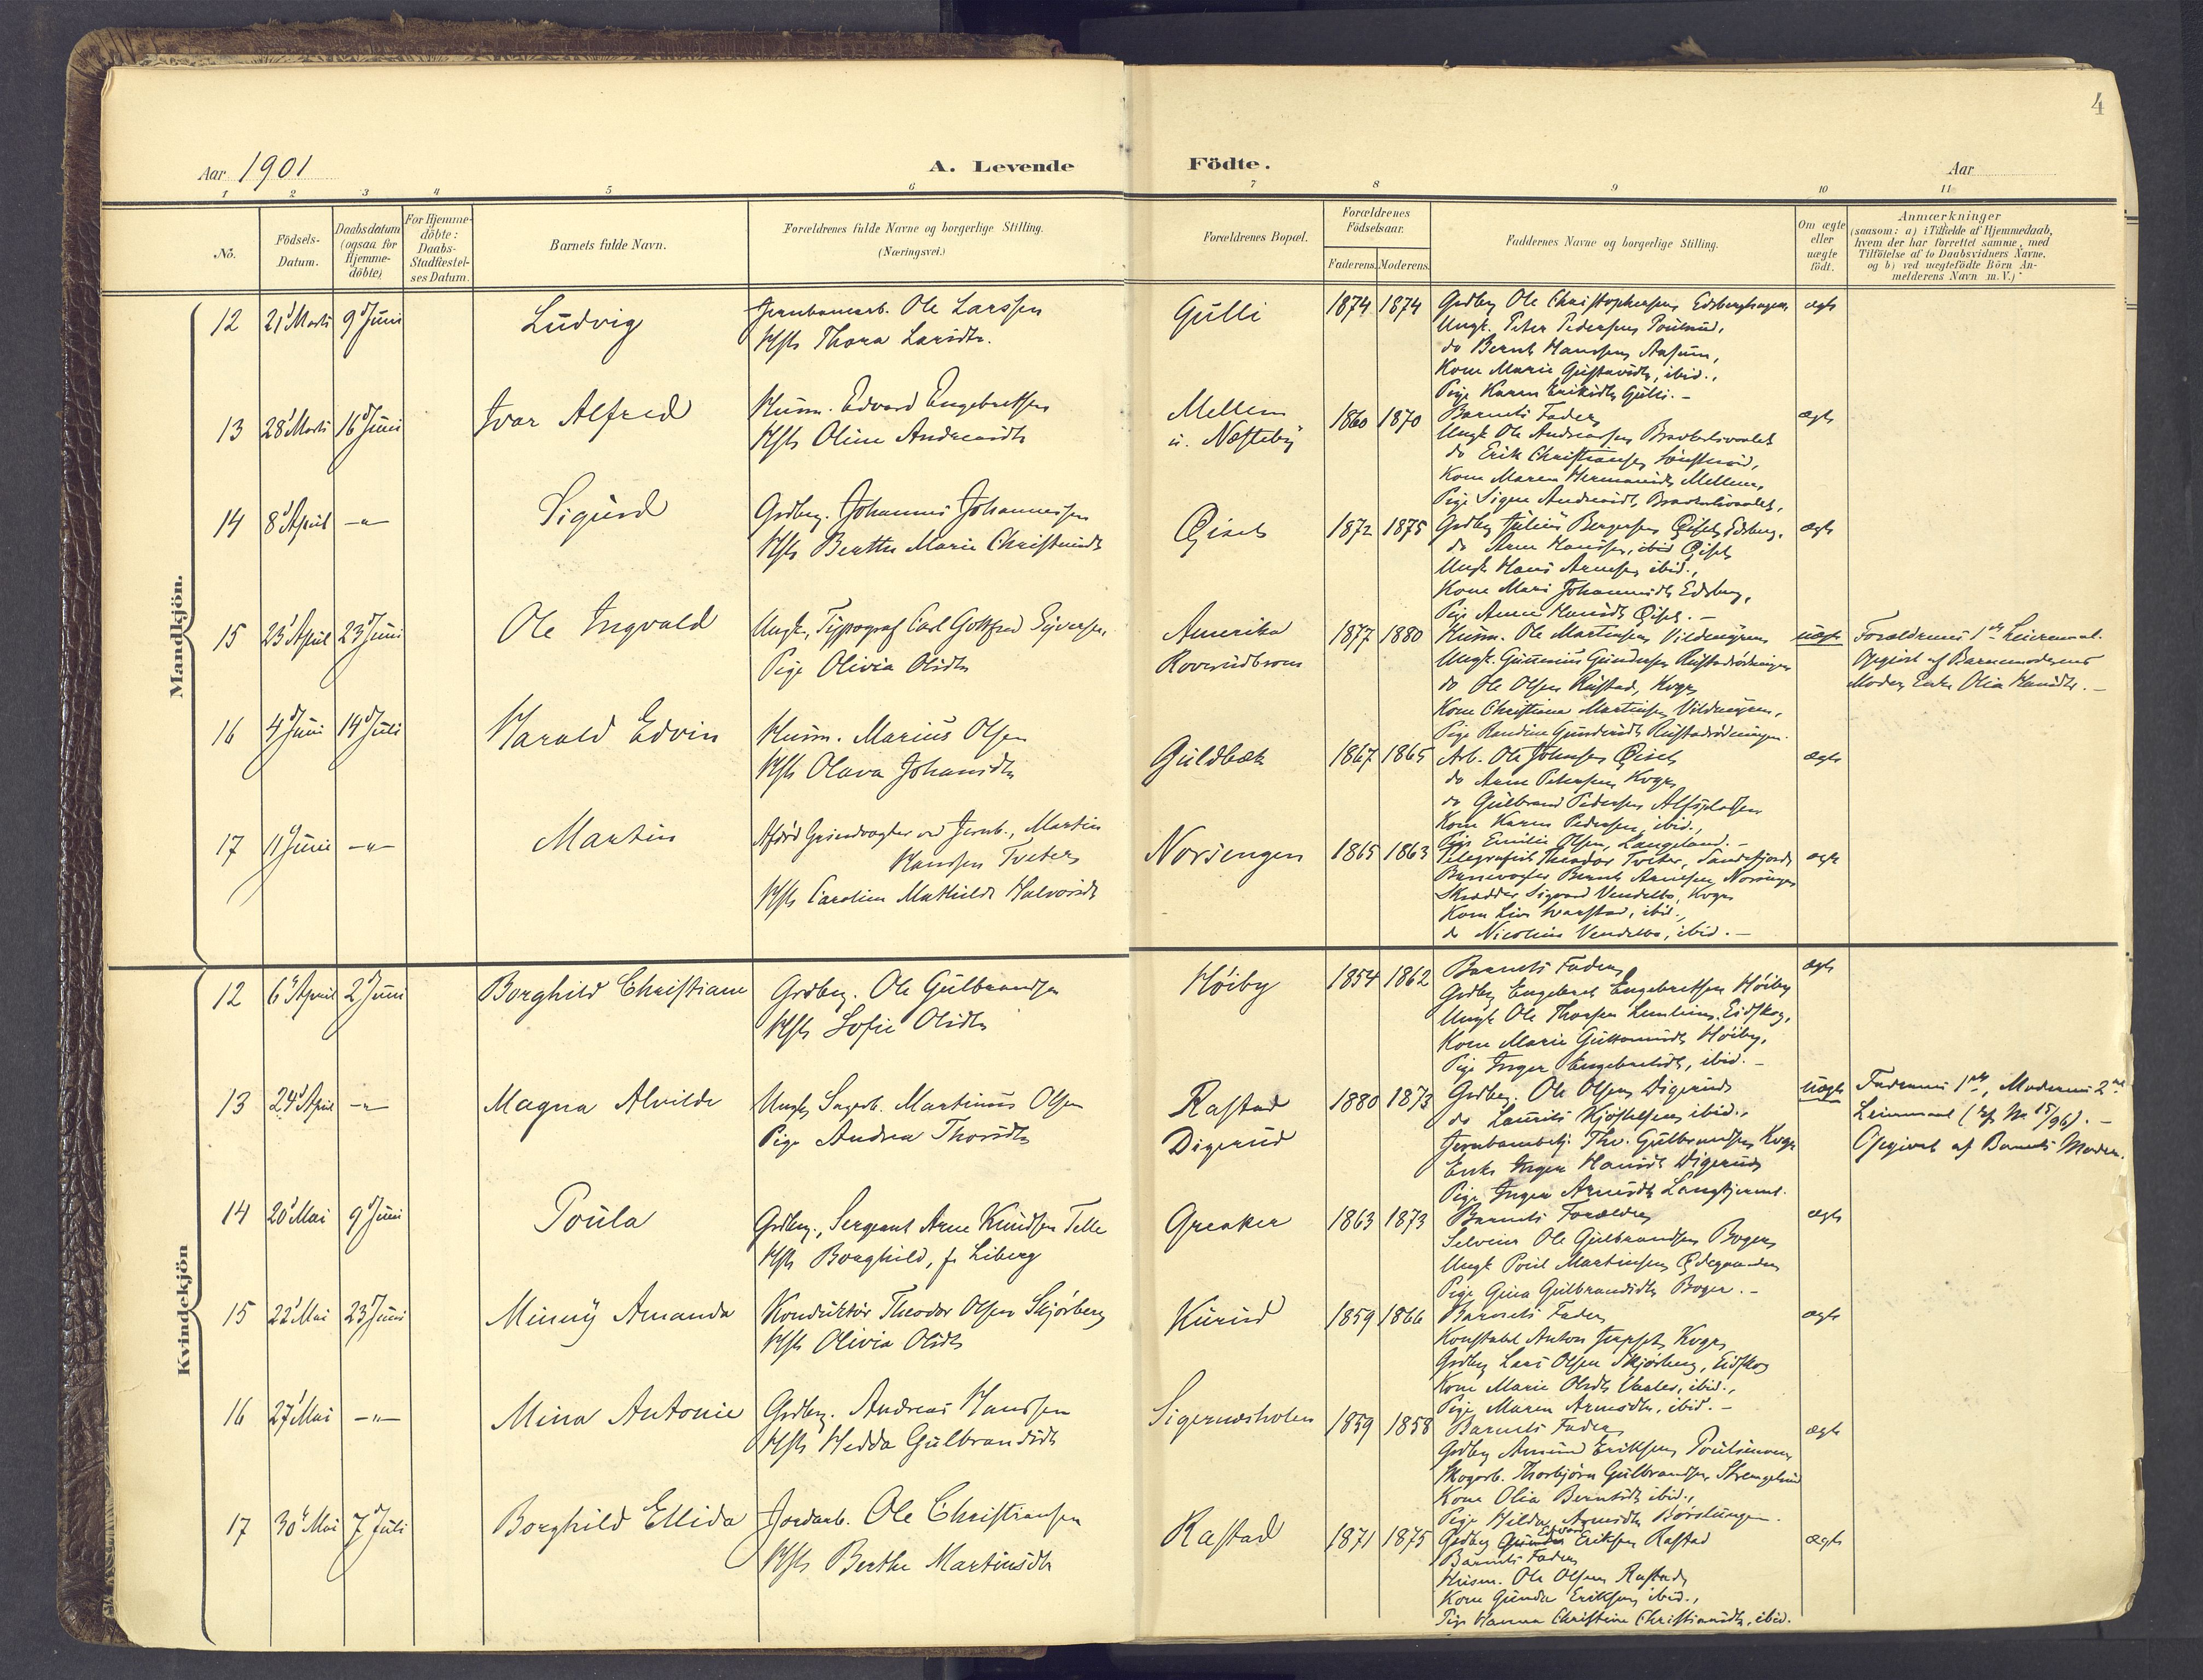 4
Aar 1901
A. Levende
Födte.
Aar
1 2 3 4 5 6 7 8 9 10 11
No.
Födsels-Datum.
Daabsdatum (ogsaa for Hjemme-döbte)
For Hjemme-döbte: Daabs-Stadfæstel-ses Datum.
Barnets fulde Navn.
Forældrenes fulde Navne og borgerlige Stilling.
(Næringsvei.)
Forældrenes Bopæl.
Forældrenes Födselsaar.
Faderens. Moderens.
Faddernes Navne og borgerlige Stilling.
Om ægte eller uægte födt.
Anmærkninger
(saasom: a) i Tilfælde af Hjemmedaab,
hvem der har forrettet samme, med
Tilföielse af to Daabsvidners Navne,
og b) ved uægtefödte Börn An-
melderens Navn m. V.)
Mandkjön.
12 21 Marts 9 Juni Ludvig Jernbanearb. Ole Larssen Gulli 1874 1874 Gdbr Ole Christophersen ægte
Hst Thora Larsdtr.
Ungk. Peter Pedersen
do Bernt Hanssen Aasum,
Kone Marie Gustavsdtr, ibid.,
Pige Karen Eriksdtr Gulli.-
13 28 Marts 16 Juni Ivar Alfred Husm. Edvard Engebretsen Mellem 1860 1870 Barnets Fader ægte
Hst Oline Andreasdtr u. Næsteby
Ungk Ole Andreassen
do Erik Christiansen
Kone Maren Hermansdtr Mellem,
Pige Signe Andreasdtr,
14 8 April -"- Sigurd Gdbr. Johannes Johannessen 1872 1875 ægte
Hst Berthe Marie
do Arne Hanssen, ibid
Ungk Hans Arnesen ibid.,
Kone Mari Johannesdtr Edsberg,
Pige Anne Hansdtr
15 23 April 23 Juni Ole Ingvald Ungk., Typograf Carl Gottfred Syversen, Amerika 1877 1880 Husm. Ole Martinsen uægte Forældrenes 1ste Leiermaal.
Pige Olivia Olsdtr
Ungk. Gunerius Gundersen
Opgivet af Barnemoderens
do Ole Olsen Rustad, Kroger
Moder, Enke Olia Hansdtr.-
Kone Christiane Martinsen
16 4 Juni 14 Juli Harald Edvin Husm. Marius Olsen Guldbæk 1867 1865 Arb. Ole Johansen ægte
Hst Olava Johansdtr
do Arne Petersen
do Gulbrand Pedersen Alfsplassen
Kone Karen Pedersen, ibid.,
Pige Emilie Olsen, Langeland.-
17 11 Juni -"- Martin Afdød Grindvogter ved Jernb., Martin Norsengen 1865 1863 Telegrafist Theodor Tveter, Sandefjord ægte
Hanssen Tveter
Hst Caroline Mathilde Halvorsdtr
Banevogter Bernt Arnesen Norsengen
Skrædder Sigvard Vendelbo,
do Nicoline Vendelbo, ibid.-
Kvindekjön
12 6 April 2 Juni Borghild Christiane Gdbr. Ole Gulbrandsen Høiby 1854 1862 Barnets Fader ægte
Hst Sofie Olsdtr
Gdbr Engebret Engebretsen Høiby
Ungk Ole Thorsen Eidskog,
Kone Marie Høiby,
Pige Inger Engebretsdtr, ibid.-
13 24 April -"- Magna Alvilde Ungk, Sagarb. Martinius Olsen Rastad 1880 1873 Gdbr. Ole Olsen Digerud uægte Faderens 1ste, Moderens 2det
Pige Andrea Thorsdtr Digerud
do Laurits ibid.,
Leiermaal (cfr No 15/96).-
Jernbanebetj. Thv. Gulbrandsen
Opgivet af Barnets Moder.
Enke Inger Hansdtr Digerud
Pige Inger Arnesdtr
14 20 Mai 9 Juni Poula Gdbr., Sergeant Arne Knudsen Telle Greaker 1863 1873 Barnets Forældre ægte
Hst Borghild, f. Liberg
Selveier Ole Gulbrandsen Boger
Ungk Poul Martinsen
Pige Gina Gulbrandsdtr Boger.-
15 22 Mai 23 Juni Minny Amanda Konduktør Theodor Olsen Skjørberg Kurud 1859 1866 Barnets Fader ægte
Hst Olivia Olsdtr
Konstabel Anton
Gdbr Lars Olsen Skjørberg, Eidskog
Kone Marie Olsdtr ibid.,
Pige Maren Arnesdtr, ibid.-
16 27 Mai -"- Mina Antonie Gdbr. Andreas Hanssen Sigernesholen 1859 1858 Barnets Fader ægte
Hst Hedda Gulbrandsdtr
Gdbr Amund Eriksen
Skogarb. Thorbjørn Gulbrandsen
Kone Olia Berntsdtr ibid.,
Pige Hilda Arnesdtr
17 30 Mai 7 Juli Borghild Ellida Jordarb. Ole Christiansen Rastad 1871 1875 Gdbr Edvard Eriksen Rastad ægte
Hst Berthe Martinsdtr
Barnets Fader
Husm. Ole Olsen Rastad
Kone Gunda Eriksen ibid.,
Pige Hanna Christine Christiansdtr, ibid.